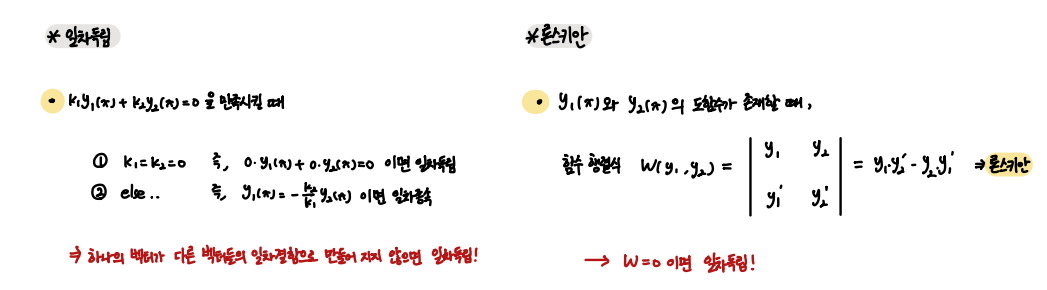 * 일차독립
• k₁y₁(x) + k₂y₂(x) = 0 을 만족시킬 때
① k₁ = k₂ = 0 즉, 0·y₁(x) + 0·y₂(x) = 0 이면 일차독립
② else.. 즉, y₁(x) = - k₂/k₁ y₂(x) 이면 일차종속
⇒ 하나의 벡터가 다른 벡터들의 일차결합으로 만들어 지지 않으면 일차독립!
* 론스키안
• y₁(x) 와 y₂(x) 의 도함수가 존재할 때,
함수 행렬식 W(y₁, y₂) = | y₁ y₂ | = y₁·y₂' - y₂·y₁' ⇒ 론스키안
| y₁' y₂' |
→ W = 0 이면 일차독립!